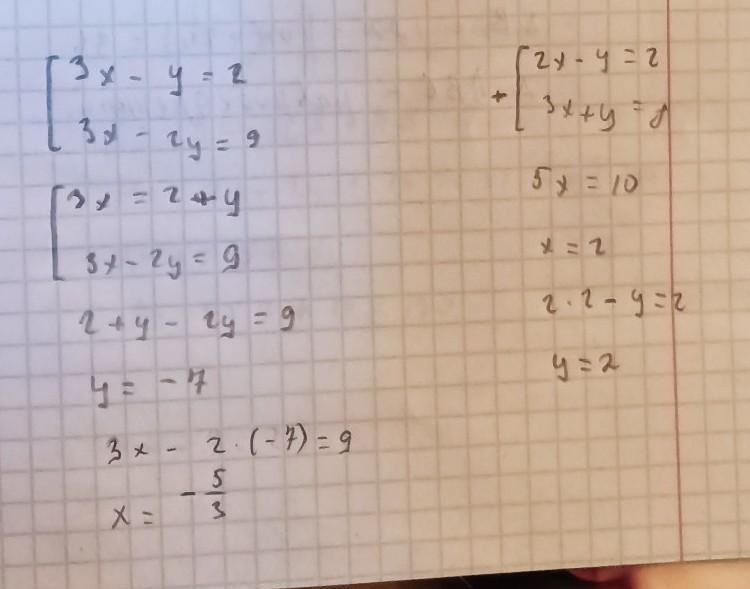 3x - y = 2
3x - 2y = 9
3x = 2 + y
3x - 2y = 9
2 + y - 2y = 9
y = -7
3x - 2 · (-7) = 9
x = - 5/3
+ 2x - y = 2
3x + y = 8
5x = 10
x = 2
2 · 2 - y = 2
y = 2